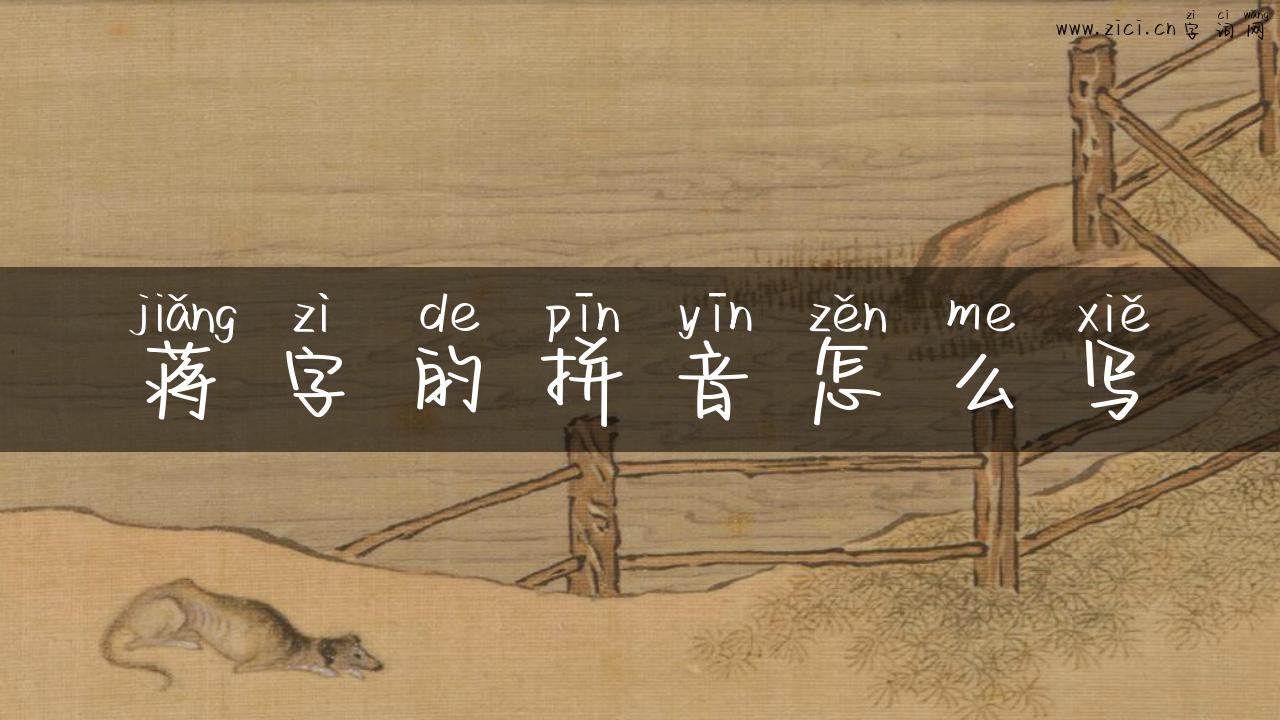 zì cí wǎng
www.zici.cn字词网
jiǎng zì de pīn yīn zěn me xiě
蒋字的拼音怎么写